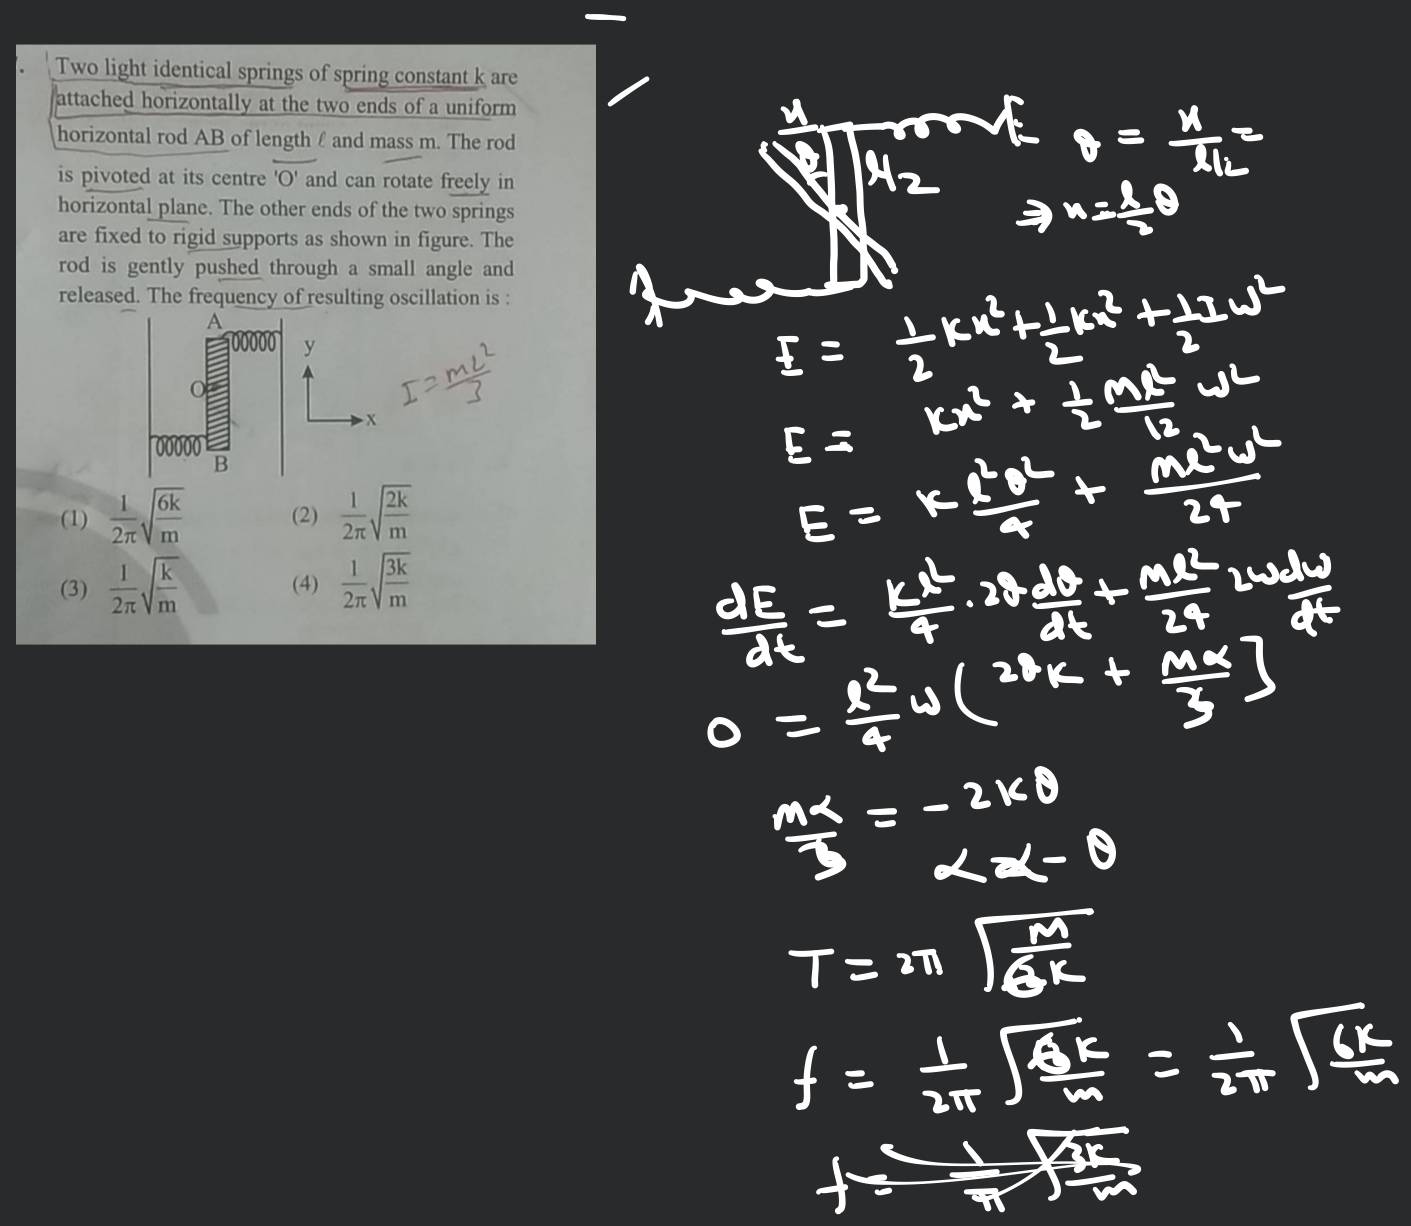 Two light identical springs of spring constant k are
attached horizontally at the two ends of a uniform
horizontal rod AB of length ℓ and mass m. The rod
is pivoted at its centre 'O' and can rotate freely in
horizontal plane. The other ends of the two springs
are fixed to rigid supports as shown in figure. The
rod is gently pushed through a small angle and
released. The frequency of resulting oscillation is :
A
y
O
x
B
I = mL²/3
(1) 1/2π √(6k/m)
(2) 1/2π √(2k/m)
(3) 1/2π √(k/m)
(4) 1/2π √(3k/m)
x
θ
l/2
θ = x/(l/2) =
⇒ x = l/2 θ
E = 1/2 Kx² + 1/2 Kx² + 1/2 I ω²
E = Kx² + 1/2 Ml²/12 ω²
E = K l²θ²/4 + Ml²ω²/24
dE/dt = Kl²/4 . 2θ dθ/dt + Ml²/24 2ω dω/dt
0 = l²/4 ω ( 2θK + Mα/3 ]
Mα/3 = - 2Kθ
α α - θ
T = 2π √(M/6K)
f = 1/2π √(6K/m) = 1/2π √(6K/m)
f = 1/π √(3K/m)